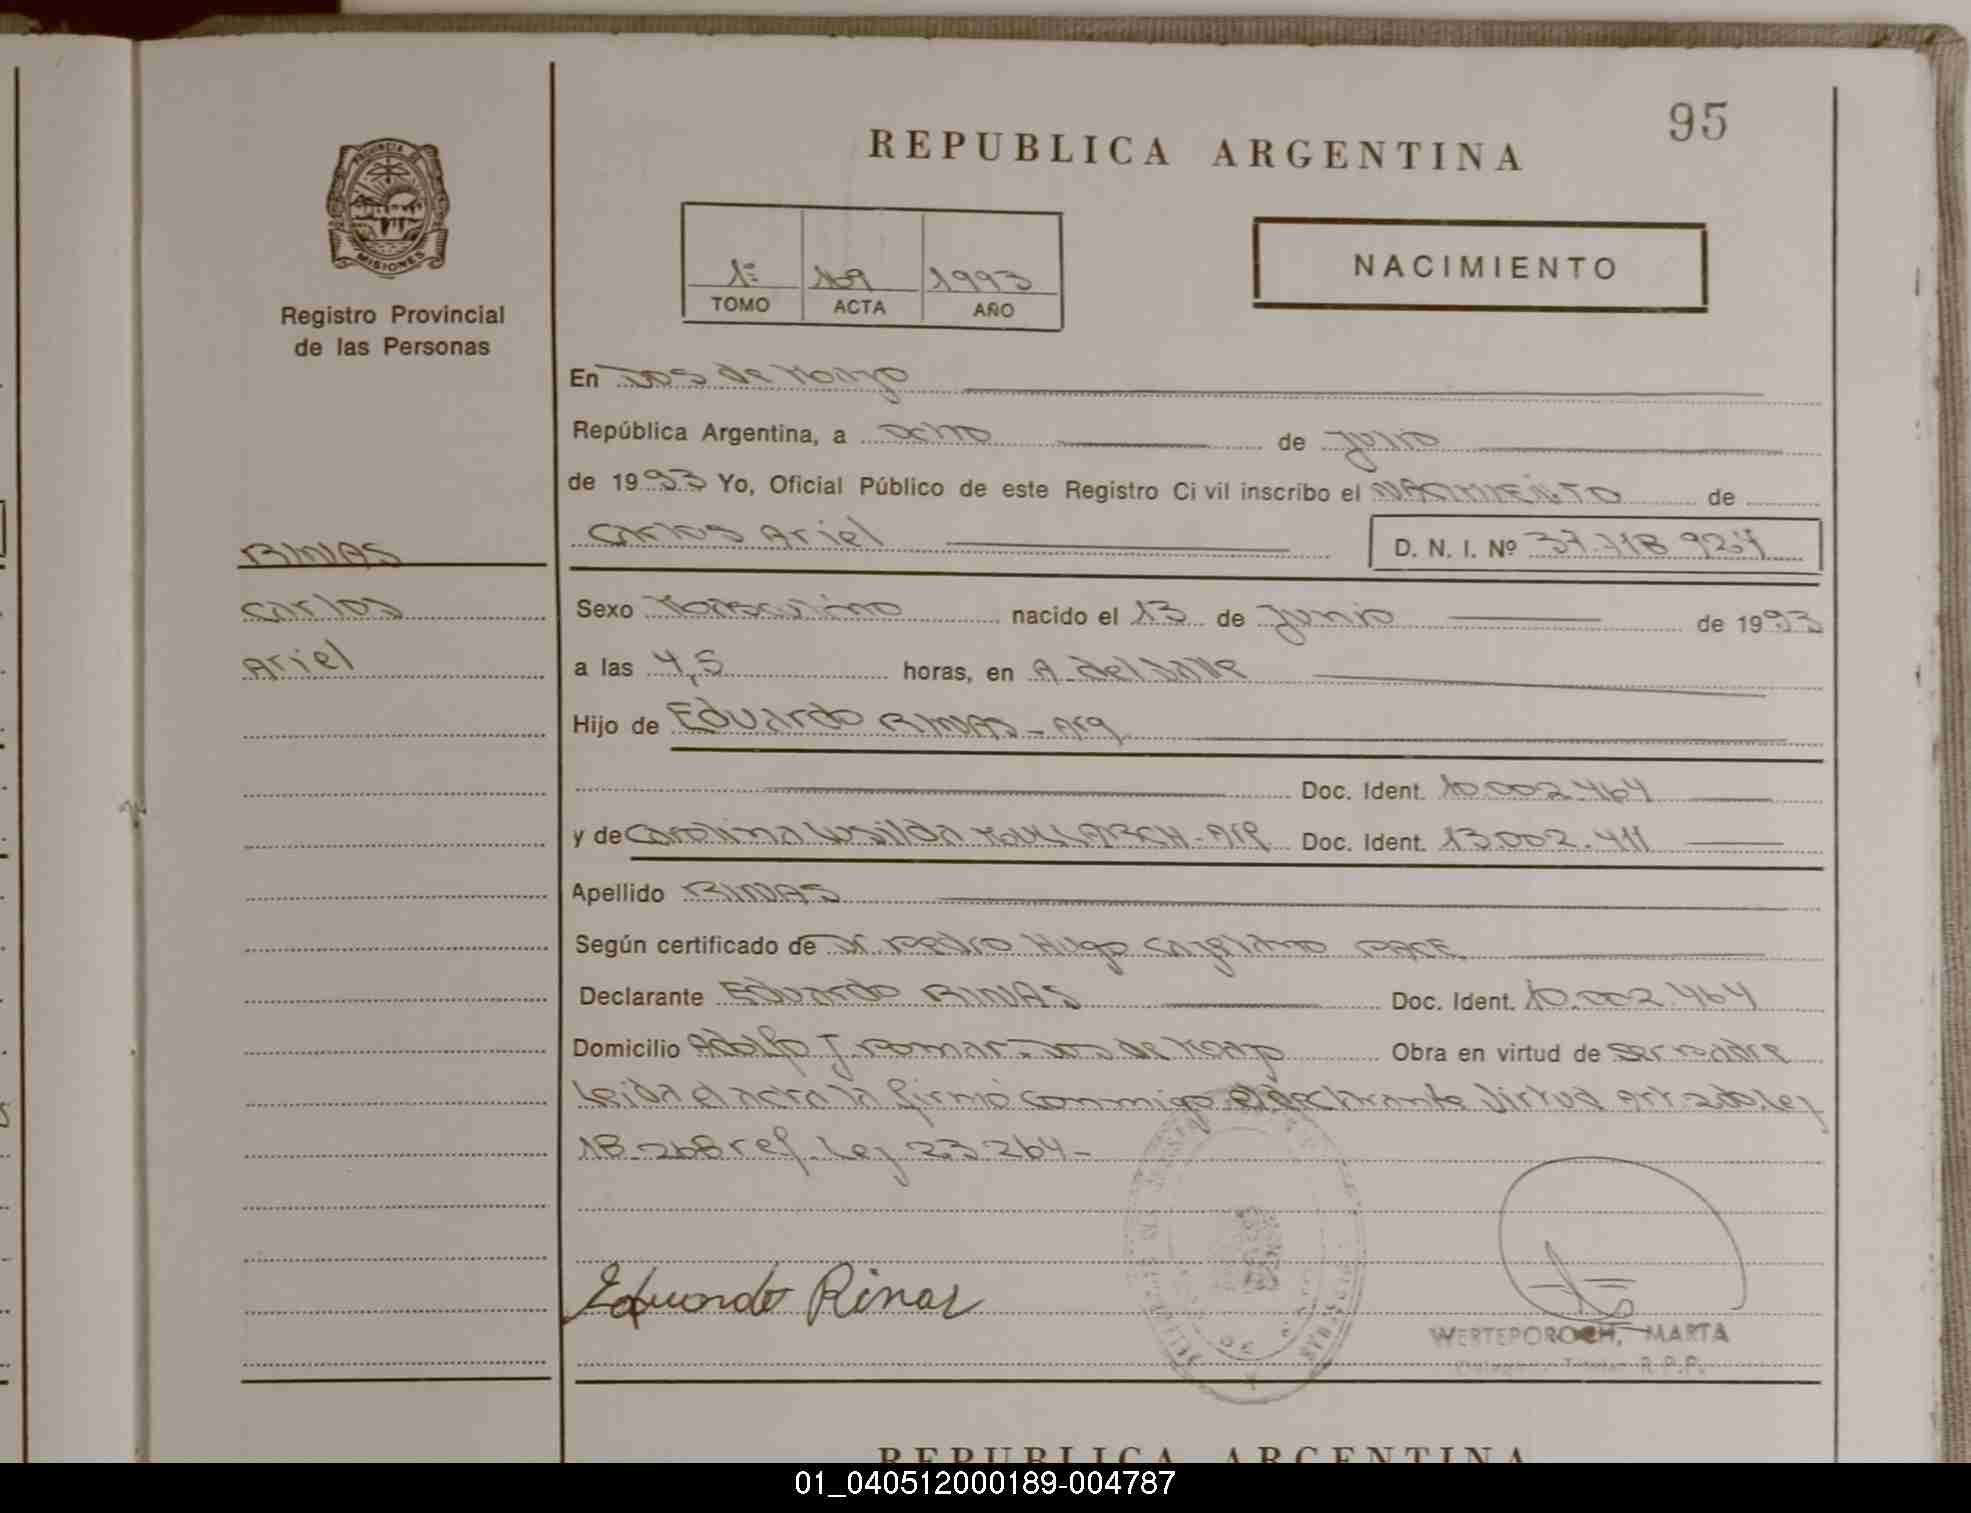 95
REPUBLICA ARGENTINA
PROVINCIA DE
MISIONES
Registro Provincial
de las Personas
NACIMIENTO
1º 169 1993
TOMO ACTA AÑO
En Dos de Mayo
República Argentina, a ocho de julio
de 1993 Yo, Oficial Público de este Registro Civil inscribo el NACIMIENTO de
RINAS
Carlos Ariel D. N. I. Nº 37.718.927
Carlos
Sexo Masculino nacido el 13 de junio de 1993
Ariel
a las 4,5 horas, en A. del Valle
Hijo de Eduardo RINAS - Arg
Doc. Ident. 10.002.464
y de Carolina Doc. Ident. 13.002.411
Apellido RINAS
Según certificado de Dr. Pedro Hugo Cayetano PACE
Declarante Eduardo RINAS Doc. Ident. 10.002.464
Domicilio Adolfo J. Pomar - Dos de Mayo Obra en virtud de ser padre
Leida el acta la firmó conmigo el declarante virtud Art. Ley
18.268 ref. Ley 23.264-
Eduardo Rinas
WERTEPOROCH, MARTA
R.P.P.
REPUBLICA ARGENTINA
01_040512000189-004787